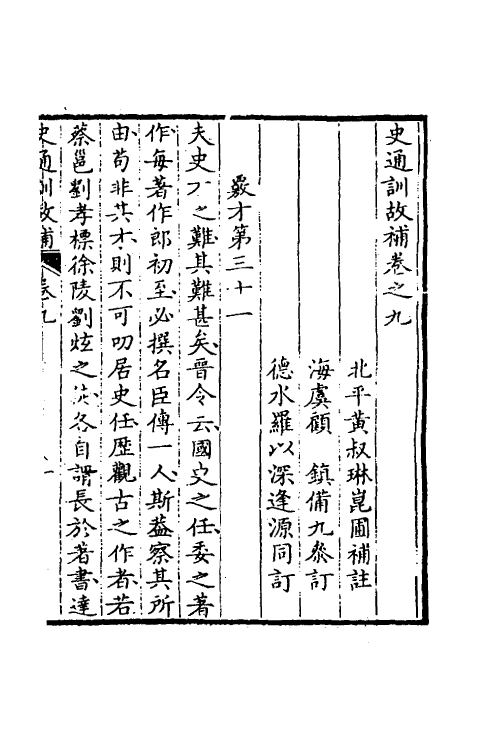 史通訓故補卷之九
北平黃叔琳崑圃補註
海虞顧　鎮備九參訂
德水羅以深逢源同訂
覈才第三十一
夫史才之難其難甚矣晉令云國史之任委之著
作每著作郎初至必撰名臣傳一人斯葢察其所
由苟非其才則不可叨居史任歷觀古之作者若
蔡邕劉孝標徐陵劉炫之徒各自謂長於著書達
史通訓故補　卷九　一